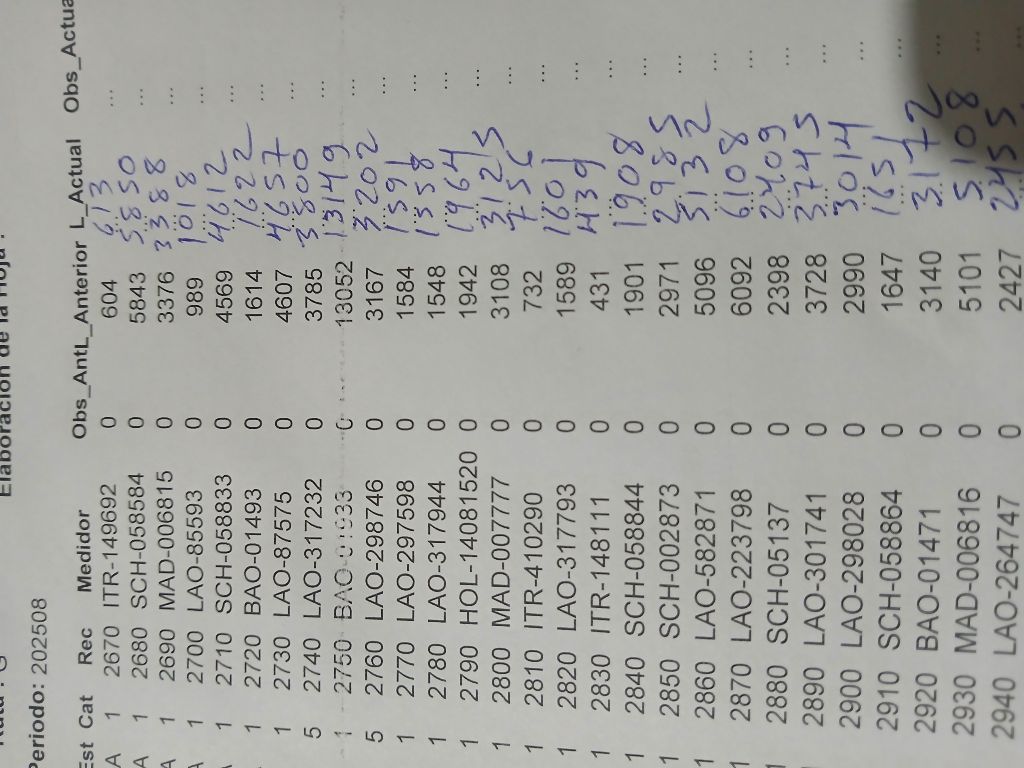 Elaboración de la Hoja :
Periodo: 202508
Est Cat Rec Medidor Obs_AntL_Anterior L_Actual Obs_Actua
A 1 2670 ITR-149692 0 604 613 ...
A 1 2680 SCH-058584 0 5843 5850 ...
A 1 2690 MAD-006815 0 3376 3388 ...
A 1 2700 LAO-85593 0 989 1018 ...
1 2710 SCH-058833 0 4569 4612 ...
1 2720 BAO-01493 0 1614 1622 ...
1 2730 LAO-87575 0 4607 4657 ...
5 2740 LAO-317232 0 3785 3800 ...
1 2750 BAO-01933 0 13052 13149 ...
5 2760 LAO-298746 0 3167 3202 ...
1 2770 LAO-297598 0 1584 1591 ...
1 2780 LAO-317944 0 1548 1558 ...
1 2790 HOL-14081520 0 1942 1964 ...
1 2800 MAD-007777 0 3108 3125 ...
1 2810 ITR-410290 0 732 756 ...
1 2820 LAO-317793 0 1589 1601 ...
1 2830 ITR-148111 0 431 439 ...
1 2840 SCH-058844 0 1901 1908 ...
1 2850 SCH-002873 0 2971 2985 ...
1 2860 LAO-582871 0 5096 5132 ...
1 2870 LAO-223798 0 6092 6108 ...
1 2880 SCH-05137 0 2398 2409 ...
2890 LAO-301741 0 3728 3745 ...
2900 LAO-298028 0 2990 3014 ...
2910 SCH-058864 0 1647 1651 ...
2920 BAO-01471 0 3140 3172 ...
2930 MAD-006816 0 5101 5108 ...
2940 LAO-264747 0 2427 2455 ...